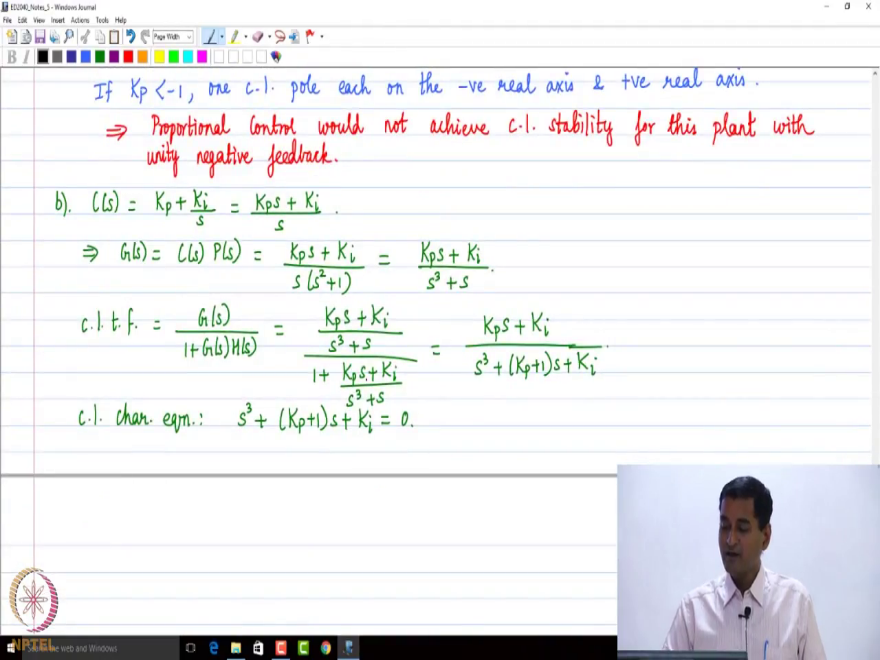 ED2040_Notes_5 - Windows Journal
File Edit View Insert Actions Tools Help
Page Width
B I
If Kp < -1, one c.l. pole each on the -ve real axis & +ve real axis.
⇒ Proportional Control would not achieve c.l. stability for this plant with
unity negative feedback.
b). C(s) = Kp + Ki/s = (Kps + Ki)/s .
⇒ G(s) = C(s) P(s) = (Kps + Ki)/(s(s²+1)) = (Kps + Ki)/(s³ + s) .
c.l. t.f. = G(s)/(1+G(s)H(s)) = ((Kps + Ki)/(s³ + s))/(1 + (Kps + Ki)/(s³ + s)) = (Kps + Ki)/(s³ + (Kp+1)s + Ki) .
c.l. char. eqn.: s³ + (Kp+1)s + Ki = 0.
NPTEL
the web and Windows